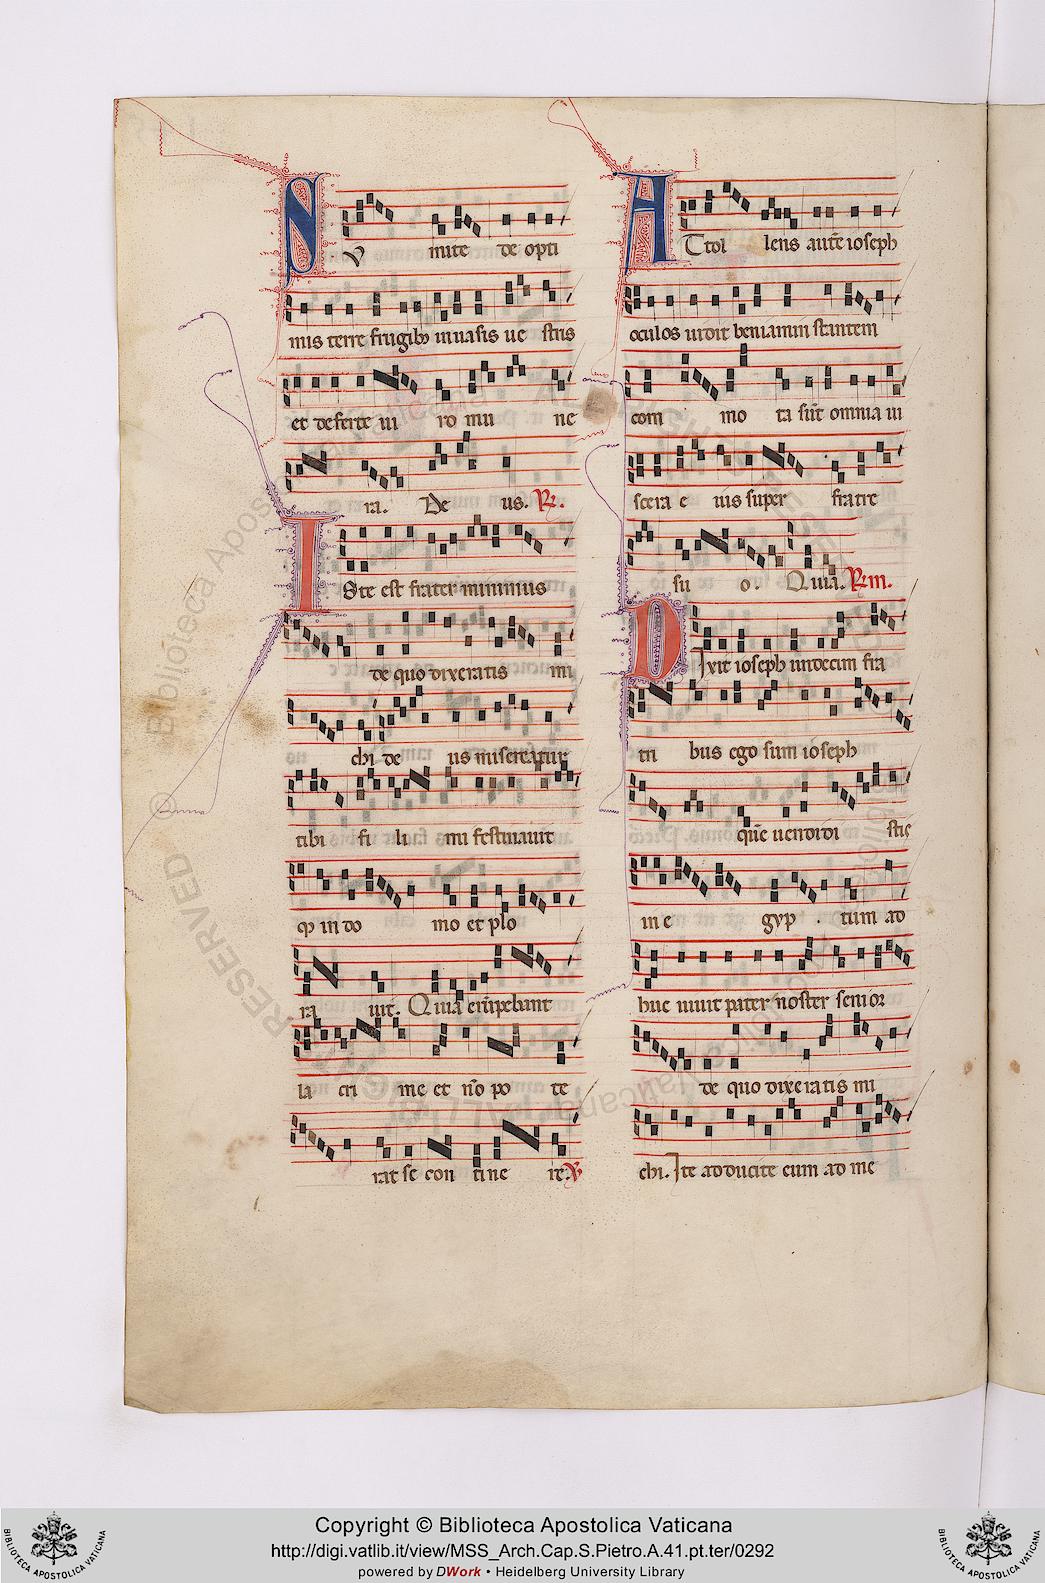 S V mite de opti
mis terre frugibꝫ in uasis ue stris
et deferte ui ro mu ne
ra. De us. R.
I Ste est frater minimus
de quo dixeratis mi
chi de us misereatur
tibi fi li mi festinauit
qꝫ in do mo et plo
ra uit. Quia erūpebant
la cri me et nō po te
rat se con tine re. V
A Ttol lens autē ioseph
oculos uidit beniamin stantem
com mo ta sūt omnia ui
scera e ius super fratre
su o. Quia. Rm.
D Ixit ioseph undecim fra
tri bus ego sum ioseph
quē uendidi stis
in e gyp tum ad
huc uiuit pater noster senior
de quo dixeratis mi
chi. Ite adducite eum ad me
Copyright © Biblioteca Apostolica Vaticana
http://digi.vatlib.it/view/MSS_Arch.Cap.S.Pietro.A.41.pt.ter/0292
powered by DWork • Heidelberg University Library
BIBLIOTECA APOSTOLICA VATICANA
BIBLIOTECA APOSTOLICA VATICANA